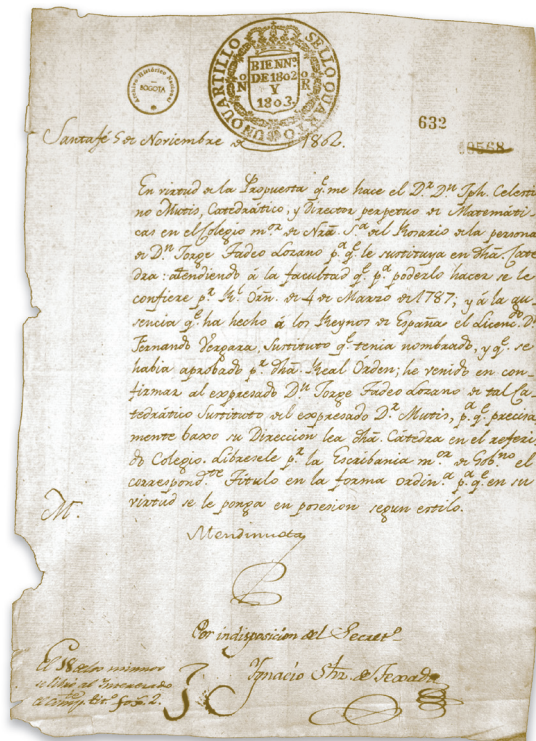 SELLO QUARTO, UN QUARTILLO
BIENNº.
DE 1802
Y
1803.
Archivo Histórico Nacional
BOGOTA
632
Santafé 5 de Noviembre de 1802.
En virtud de la Propuesta q.e me hace el D.r D.n Jph. Celesti-
no Mutis, Catedrático, y Director perpetuo de Matemáti-
cas en el Colegio m.or de Nrã. S.a del Rosario de la persona
de D.n Jorge Tadeo Lozano p.a q.e le sustituya en dhã. Cate-
dra: atendiendo á la facultad q.e p.a poderlo hacer se le
confiere p.r R.l Órn. de 4 de Marzo de 1787; y á la au-
sencia q.e ha hecho á los Reynos de España el Licenc.do D.n
Fernando Vergara, Sustituto q.e tenia nombrado, y q.e se
habia aprobado p.r dhã. Real Orden; he venido en con-
firmar al expresado D.n Jorge Tadeo Lozano de tal Ca-
tedrático Sustituto del expresado D.r Mutis, p.a q.e precisa-
mente baxo su Direccion lea dhã. Cátedra en el referi-
do Colegio. Libresele p.r la Escribania m.or de Gob.no el
correspond.te Titulo en la forma ordin.a p.a q.e en su
virtud se le ponga en posesion segun estilo.
M.
Mendinueta
Por indisposicion del Secret.o
Ignacio Shz. de Texada
El 18 de los mismos
se libró al Interesado